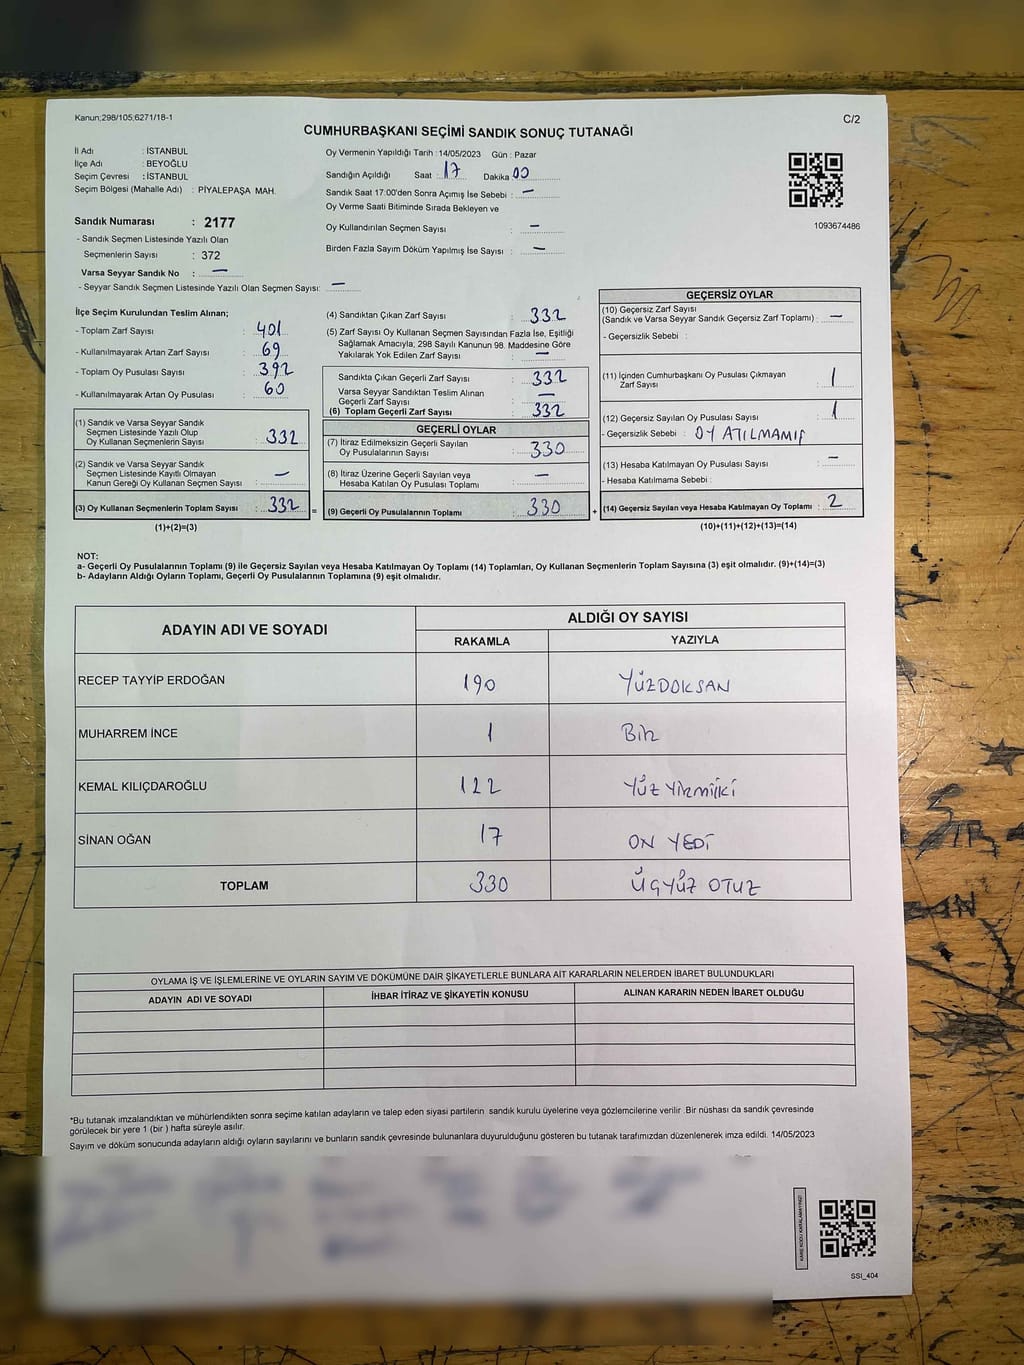 Kanun;298/105;6271/18-1
C/2
CUMHURBAŞKANI SEÇİMİ SANDIK SONUÇ TUTANAĞI
İl Adı : İSTANBUL
İlçe Adı : BEYOĞLU
Seçim Çevresi : İSTANBUL
Seçim Bölgesi (Mahalle Adı) : PİYALEPAŞA MAH.
Oy Vermenin Yapıldığı Tarih : 14/05/2023 Gün : Pazar
Sandığın Açıldığı Saat : 17 Dakika 00
Sandık Saat 17:00'den Sonra Açımış İse Sebebi : —
Oy Verme Saati Bitiminde Sırada Bekleyen ve
Oy Kullandırılan Seçmen Sayısı : —
Birden Fazla Sayım Döküm Yapılmış İse Sayısı : —
1093674486
Sandık Numarası : 2177
- Sandık Seçmen Listesinde Yazılı Olan
Seçmenlerin Sayısı : 372
Varsa Seyyar Sandık No : —
- Seyyar Sandık Seçmen Listesinde Yazılı Olan Seçmen Sayısı: —
İlçe Seçim Kurulundan Teslim Alınan;
- Toplam Zarf Sayısı : 401
- Kullanılmayarak Artan Zarf Sayısı : 69
- Toplam Oy Pusulası Sayısı : 392
- Kullanılmayarak Artan Oy Pusulası : 60
(1) Sandık ve Varsa Seyyar Sandık
Seçmen Listesinde Yazılı Olup
Oy Kullanan Seçmenlerin Sayısı : 332
(2) Sandık ve Varsa Seyyar Sandık
Seçmen Listesinde Kayıtlı Olmayan
Kanun Gereği Oy Kullanan Seçmen Sayısı : —
(3) Oy Kullanan Seçmenlerin Toplam Sayısı : 332 =
(1)+(2)=(3)
(4) Sandıktan Çıkan Zarf Sayısı : 332
(5) Zarf Sayısı Oy Kullanan Seçmen Sayısından Fazla İse, Eşitliği
Sağlamak Amacıyla, 298 Sayılı Kanunun 98. Maddesine Göre
Yakılarak Yok Edilen Zarf Sayısı : —
Sandıkta Çıkan Geçerli Zarf Sayısı : 332
Varsa Seyyar Sandıktan Teslim Alınan
Geçerli Zarf Sayısı : —
(6) Toplam Geçerli Zarf Sayısı : 332
GEÇERLİ OYLAR
(7) İtiraz Edilmeksizin Geçerli Sayılan
Oy Pusulasının Sayısı : 330
(8) İtiraz Üzerine Geçerli Sayılan veya
Hesaba Katılan Oy Pusulası Toplamı : —
(9) Geçerli Oy Pusulalarının Toplamı : 330 +
GEÇERSİZ OYLAR
(10) Geçersiz Zarf Sayısı
(Sandık ve Varsa Seyyar Sandık Geçersiz Zarf Toplamı) : —
- Geçersizlik Sebebi :
(11) İçinden Cumhurbaşkanı Oy Pusulası Çıkmayan
Zarf Sayısı : 1
(12) Geçersiz Sayılan Oy Pusulası Sayısı : 1
- Geçersizlik Sebebi : OY ATILMAMIŞ
(13) Hesaba Katılmayan Oy Pusulası Sayısı : —
- Hesaba Katılmama Sebebi :
(14) Geçersiz Sayılan veya Hesaba Katılmayan Oy Toplamı : 2
(10)+(11)+(12)+(13)=(14)
NOT:
a- Geçerli Oy Pusulalarının Toplamı (9) ile Geçersiz Sayılan veya Hesaba Katılmayan Oy Toplamı (14) Toplamları, Oy Kullanan Seçmenlerin Toplam Sayısına (3) eşit olmalıdır. (9)+(14)=(3)
b- Adayların Aldığı Oyların Toplamı, Geçerli Oy Pusulalarının Toplamına (9) eşit olmalıdır.
ADAYIN ADI VE SOYADI ALDIĞI OY SAYISI
RAKAMLA YAZIYLA
RECEP TAYYİP ERDOĞAN 190 YÜZDOKSAN
MUHARREM İNCE 1 Bir
KEMAL KILIÇDAROĞLU 122 YÜZ YİRMİİKİ
SİNAN OĞAN 17 ON YEDİ
TOPLAM 330 ÜÇYÜZ OTUZ
OYLAMA İŞ VE İŞLEMLERİNE VE OYLARIN SAYIM VE DÖKÜMÜNE DAİR ŞİKAYETLERLE BUNLARA AİT KARARLARIN NELERDEN İBARET BULUNDUKLARI
ADAYIN ADI VE SOYADI İHBAR İTİRAZ VE ŞİKAYETİN KONUSU ALINAN KARARIN NEDEN İBARET OLDUĞU
*Bu tutanak imzalandıktan ve mühürlendikten sonra seçime katılan adayların ve talep eden siyasi partilerin sandık kurulu üyelerine veya gözlemcilerine verilir .Bir nüshası da sandık çevresinde
görülecek bir yere 1 (bir ) hafta süreyle asılır.
Sayım ve döküm sonucunda adayların aldığı oyların sayılarını ve bunların sandık çevresinde bulunanlara duyurulduğunu gösteren bu tutanak tarafımızdan düzenlenerek imza edildi. 14/05/2023
KARE KODU KARALAMAYINIZ!
SSI_404